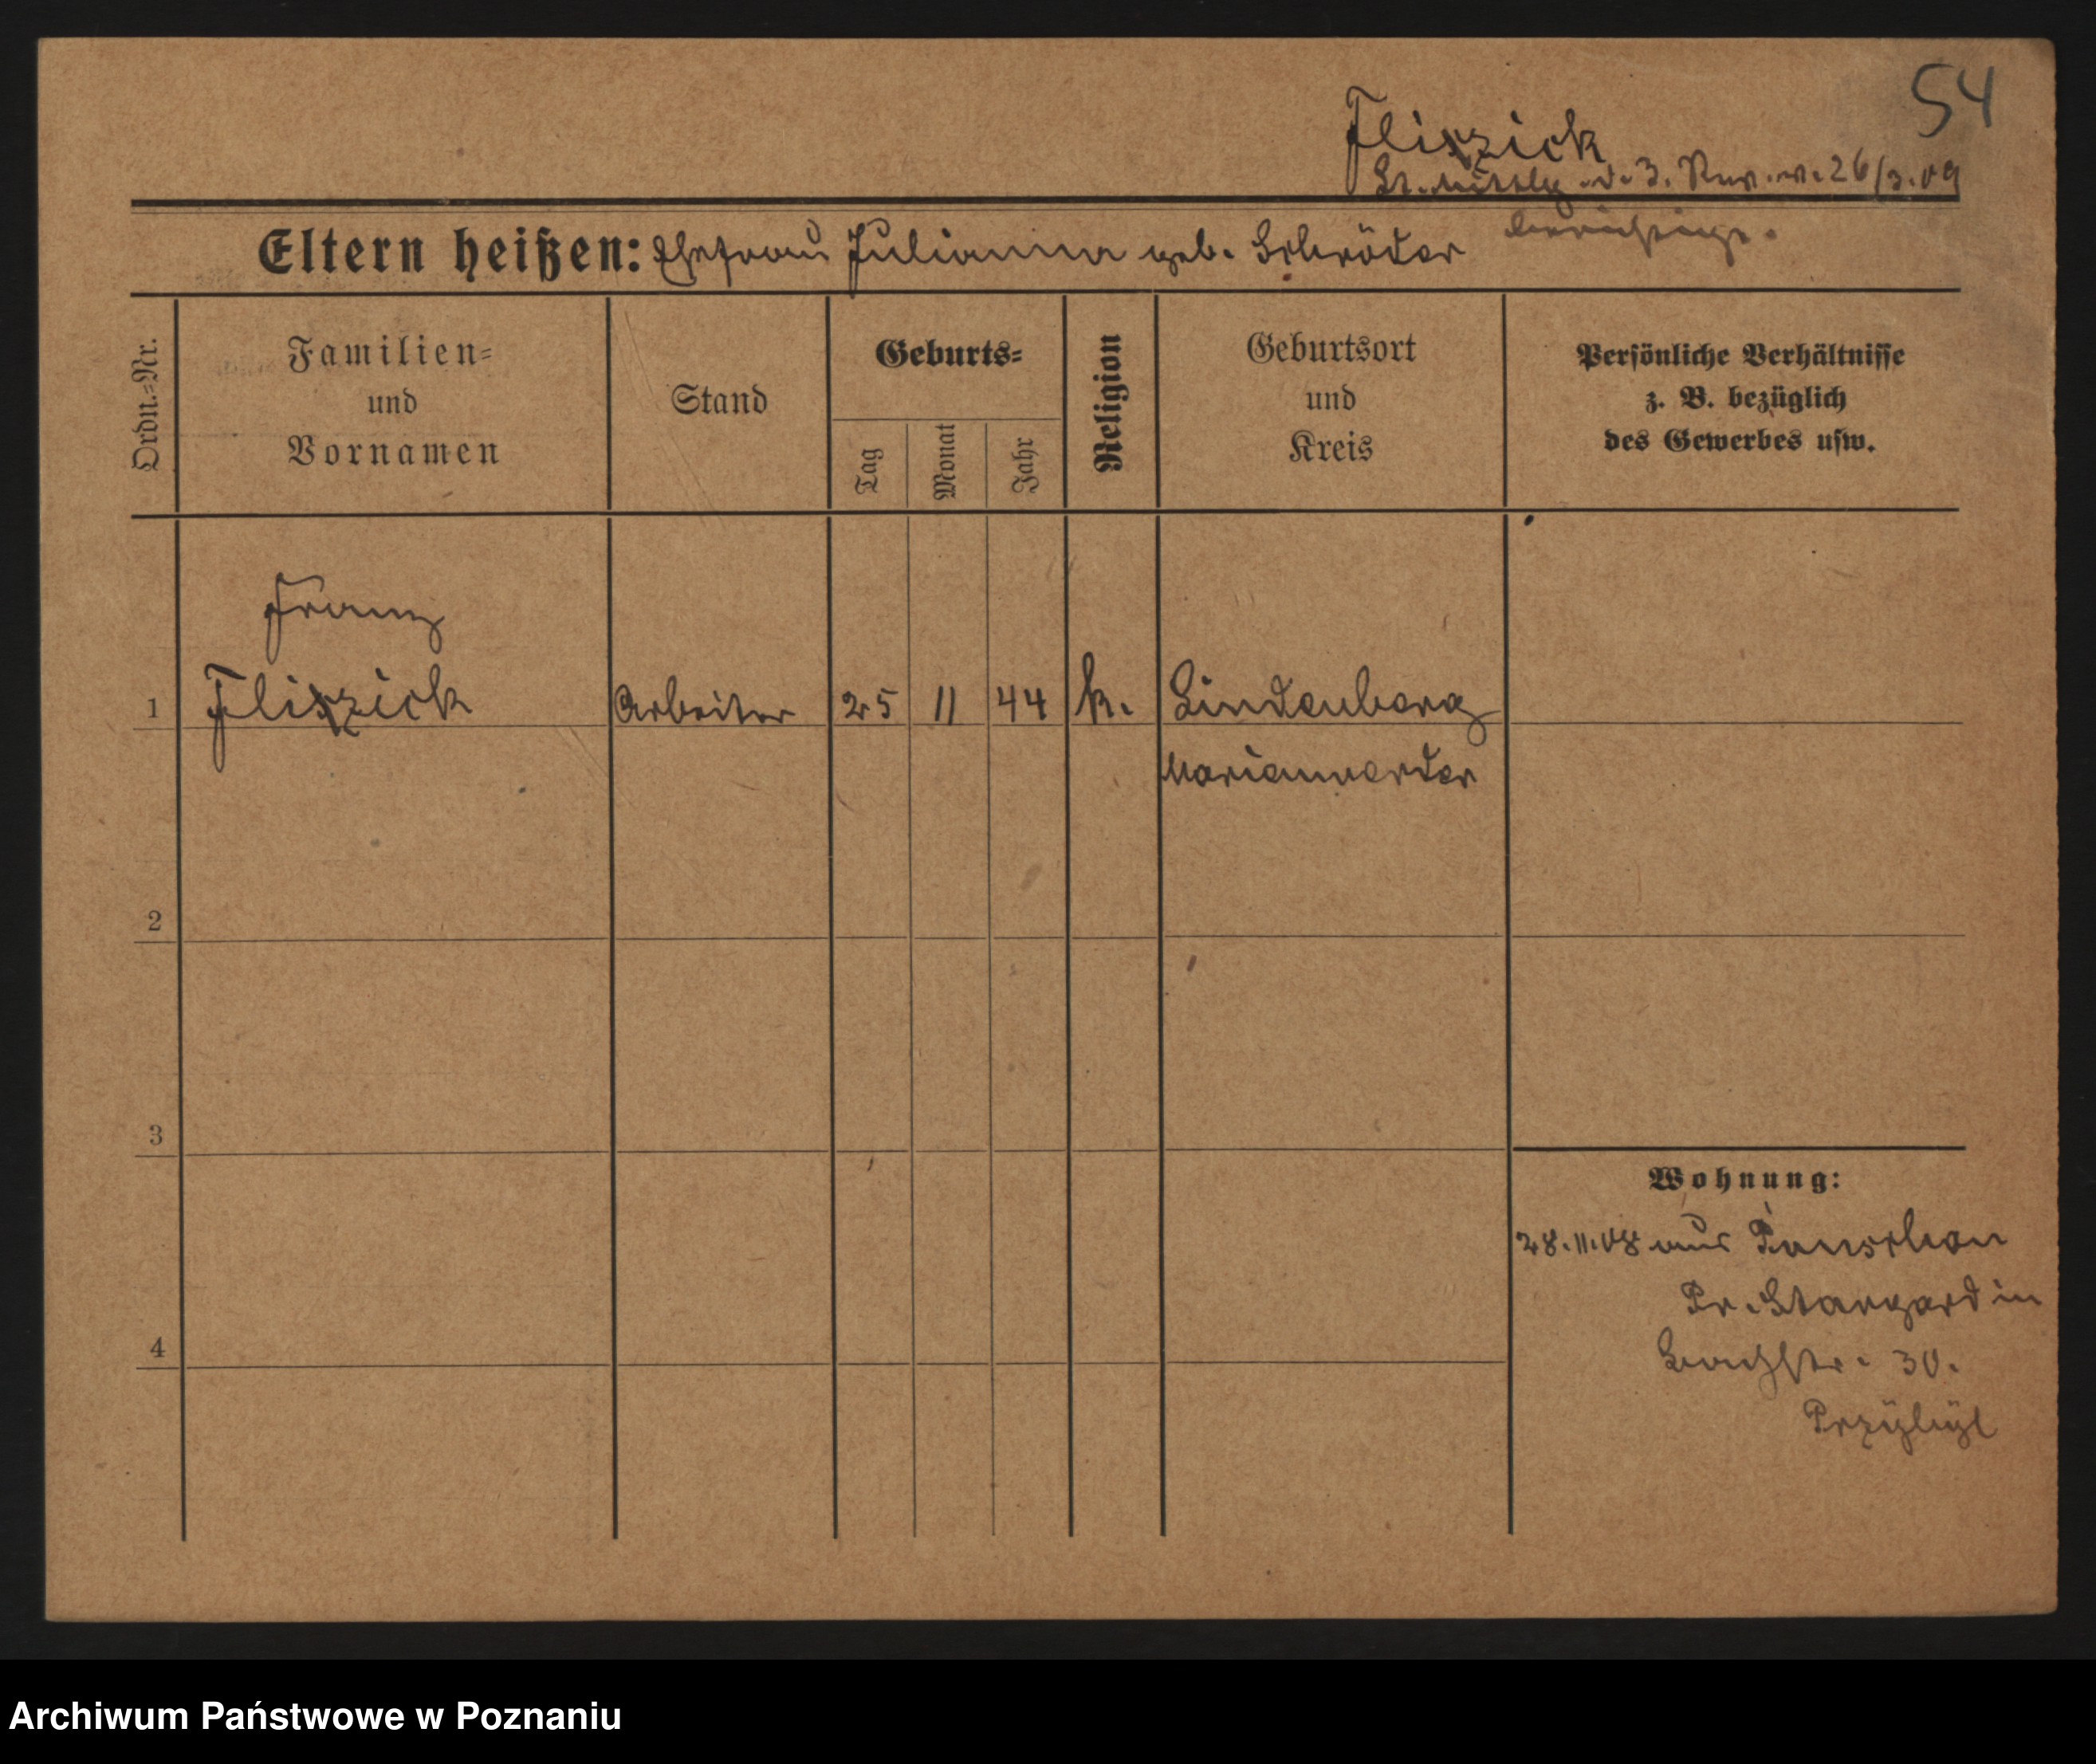 54
Fliszick
lt. Mittlg. d. 3. Rev. v. 26/3.09
berichtigt.
Eltern heißen: Ehefrau Julianna geb. Schröder
Ordn.=Nr.
Familien=
und
Vornamen
Stand
Geburts=
Tag
Monat
Jahr
Religion
Geburtsort
und
Kreis
Persönliche Verhältnisse
z. B. bezüglich
des Gewerbes usw.
Franz
1 Fliszick Arbeiter 25 11 44 k. Lindenberg
Marienwerder
2
3
Wohnung:
28.11.08 aus
Pr. Stargard in
4
30.
Archiwum Państwowe w Poznaniu